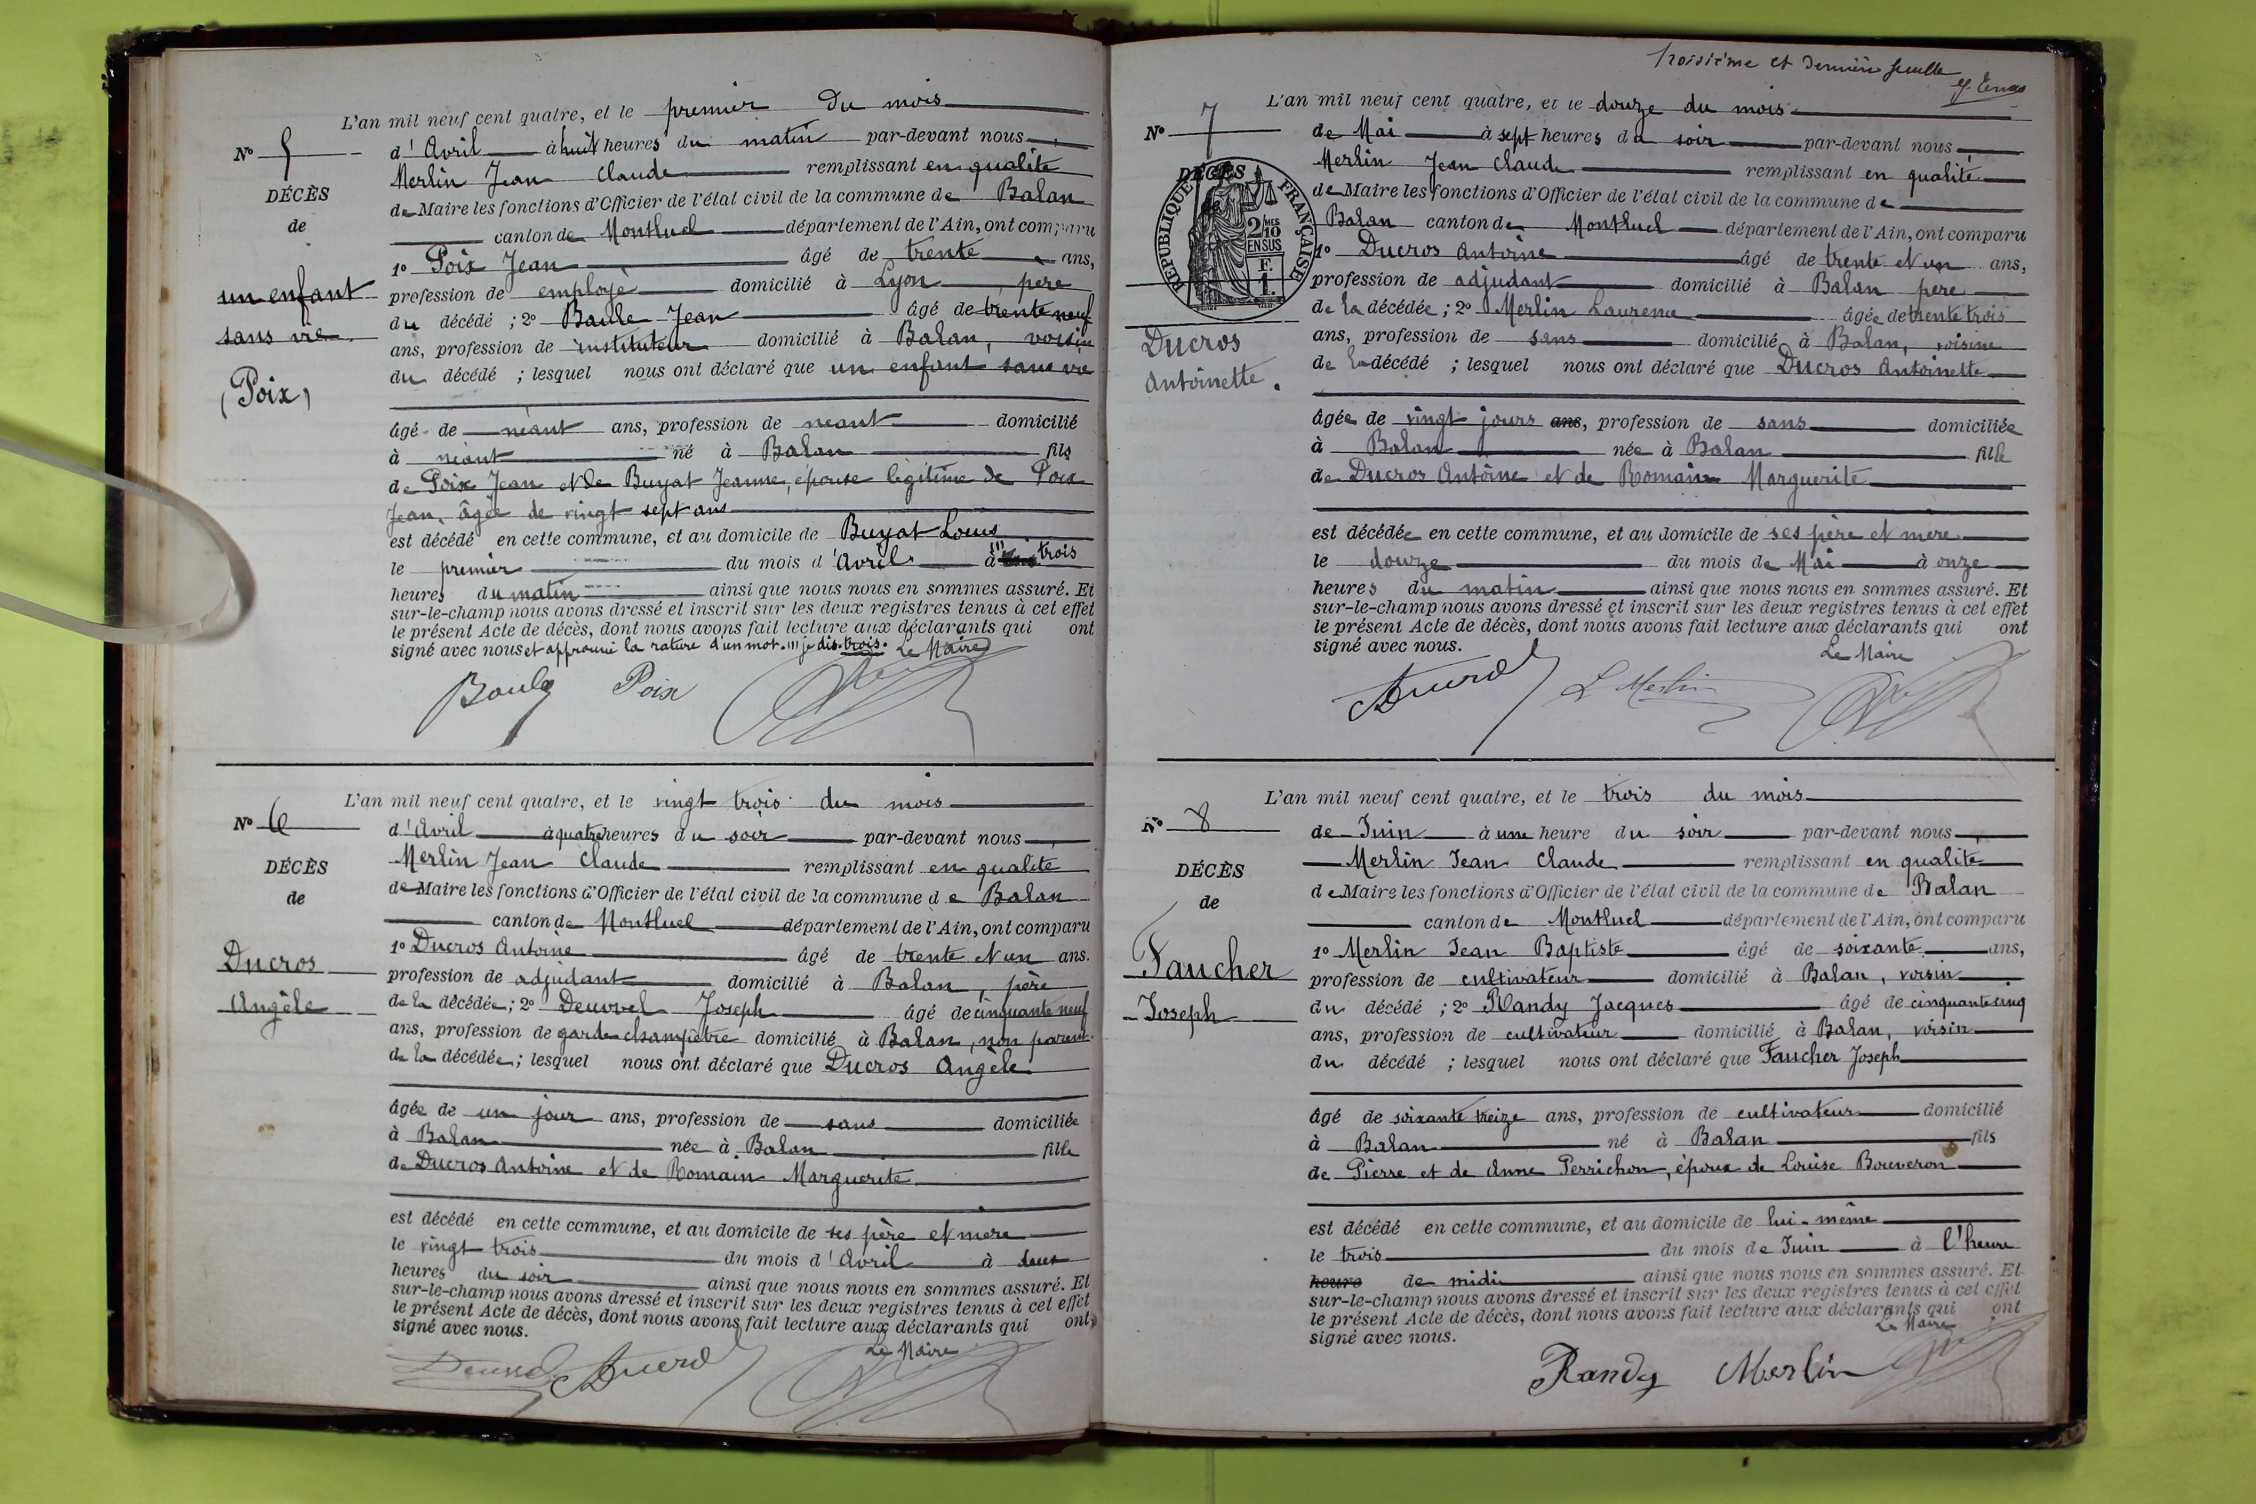 L'an mil neuf cent quatre, et le premier du mois
N° 5
d'Avril à huit heures du matin par-devant nous
Merlin Jean Claude remplissant en qualité
DÉCÈS
de Maire les fonctions d'Officier de l'état civil de la commune de Balan
de
canton de Montluel département de l'Ain, ont comparu
1° Poix Jean âgé de trente ans,
un enfant
profession de employé domicilié à Lyon père
du décédé ; 2° Baule Jean âgé de trente neuf
sans vie
ans, profession de instituteur domicilié à Balan, voisin
du décédé ; lesquel nous ont déclaré que un enfant sans vie
(Poix)
âgé de néant ans, profession de néant domicilié
à néant né à Balan fils
de Poix Jean et de Buyat Jeanne, épouse légitime de Poix
Jean, âgée de vingt sept ans
est décédé en cette commune, et au domicile de Buyat Louis
le premier du mois d'Avril à trois
heures du matin ainsi que nous nous en sommes assuré. Et
sur-le-champ nous avons dressé et inscrit sur les deux registres tenus à cet effet
le présent Acte de décès, dont nous avons fait lecture aux déclarants qui ont
signé avec nous et approuvé la rature d'un mot. ııı je dis. trois. Le Maire
Baule Poix
L'an mil neuf cent quatre, et le vingt trois du mois
N° 6
d'Avril à quatre heures du soir par-devant nous
Merlin Jean Claude remplissant en qualité
DÉCÈS
de Maire les fonctions d'Officier de l'état civil de la commune de Balan
de
canton de Montluel département de l'Ain, ont comparu
1° Ducros Antoine âgé de trente et un ans.
Ducros
profession de adjudant domicilié à Balan, père
Angèle
de la décédée ; 2° Deuvvel Joseph âgé de cinquante neuf
ans, profession de garde champêtre domicilié à Balan, non parent
de la décédée ; lesquel nous ont déclaré que Ducros Angèle
âgée de un jour ans, profession de sans domiciliée
à Balan née à Balan fille
de Ducros Antoine et de Romain Marguerite
est décédé en cette commune, et au domicile de ses père et mère
le vingt trois du mois d'Avril à deux
heures du soir ainsi que nous nous en sommes assuré. Et
sur-le-champ nous avons dressé et inscrit sur les deux registres tenus à cet effet
le présent Acte de décès, dont nous avons fait lecture aux déclarants qui ont
signé avec nous.
Le Maire
Ducros
Troisième et dernière feuille
L'an mil neuf cent quatre, et le douze du mois
N° 7
de Mai à sept heures du soir par-devant nous
Merlin Jean Claude remplissant en qualité
DÉCÈS
de Maire les fonctions d'Officier de l'état civil de la commune de
RÉPUBLIQUE FRANÇAISE
2/10 MES
EN SUS
F.
1.
Balan canton de Montluel département de l'Ain, ont comparu
1° Ducros Antoine âgé de trente et un ans,
profession de adjudant domicilié à Balan père
de la décédée ; 2° Merlin Laurence âgée de trente trois
Ducros
ans, profession de sans domicilié à Balan, voisine
Antoinette.
de la décédé ; lesquel nous ont déclaré que Ducros Antoinette
âgée de vingt jours ans, profession de sans domiciliée
à Balan née à Balan fille
de Ducros Antoine et de Romain Marguerite
est décédée en cette commune, et au domicile de ses père et mère
le douze du mois de Mai à onze
heures du matin ainsi que nous nous en sommes assuré. Et
sur-le-champ nous avons dressé et inscrit sur les deux registres tenus à cet effet
le présent Acte de décès, dont nous avons fait lecture aux déclarants qui ont
signé avec nous.
Le Maire
Ducros L Merlin
L'an mil neuf cent quatre, et le trois du mois
N° 8
de Juin à une heure du soir par-devant nous
Merlin Jean Claude remplissant en qualité
DÉCÈS
de Maire les fonctions d'Officier de l'état civil de la commune de Balan
de
canton de Montluel département de l'Ain, ont comparu
1° Merlin Jean Baptiste âgé de soixante ans,
Faucher
profession de cultivateur domicilié à Balan, voisin
Joseph
du décédé ; 2° Randy Jacques âgé de cinquante cinq
ans, profession de cultivateur domicilié à Balan, voisin
du décédé ; lesquel nous ont déclaré que Faucher Joseph
âgé de soixante treize ans, profession de cultivateur domicilié
à Balan né à Balan fils
de Pierre et de Anne Perrichon, époux de Louise Bouveron
est décédé en cette commune, et au domicile de lui-même
le trois du mois de Juin à l'heure
heure de midi ainsi que nous nous en sommes assuré. Et
sur-le-champ nous avons dressé et inscrit sur les deux registres tenus à cet effet
le présent Acte de décès, dont nous avons fait lecture aux déclarants qui ont
signé avec nous.
Le Maire
Randy Merlin